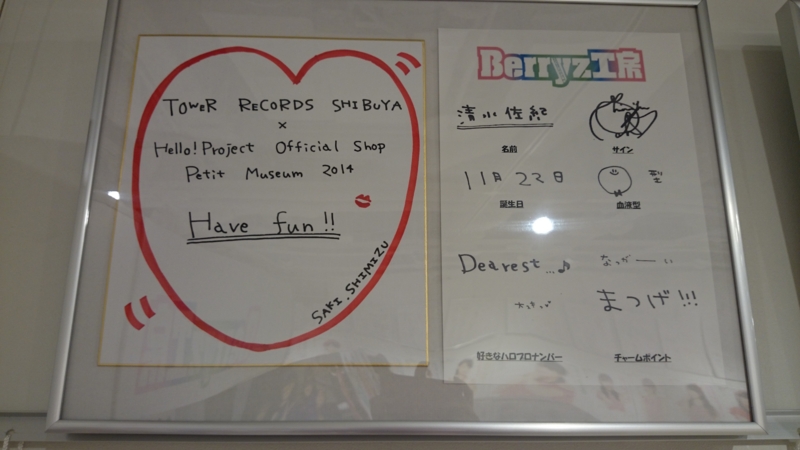 TOWER RECORDS SHIBUYA
×
Hello! Project Official Shop
Petit Museum 2014
Have fun!!
SAKI.SHIMIZU
Berryz工房
清水佐紀
名前
サイン
11月22日
誕生日
型
血液型
Dearest...♪
好きなハロプロナンバー
なっがーーい
まつげ!!!
チャームポイント